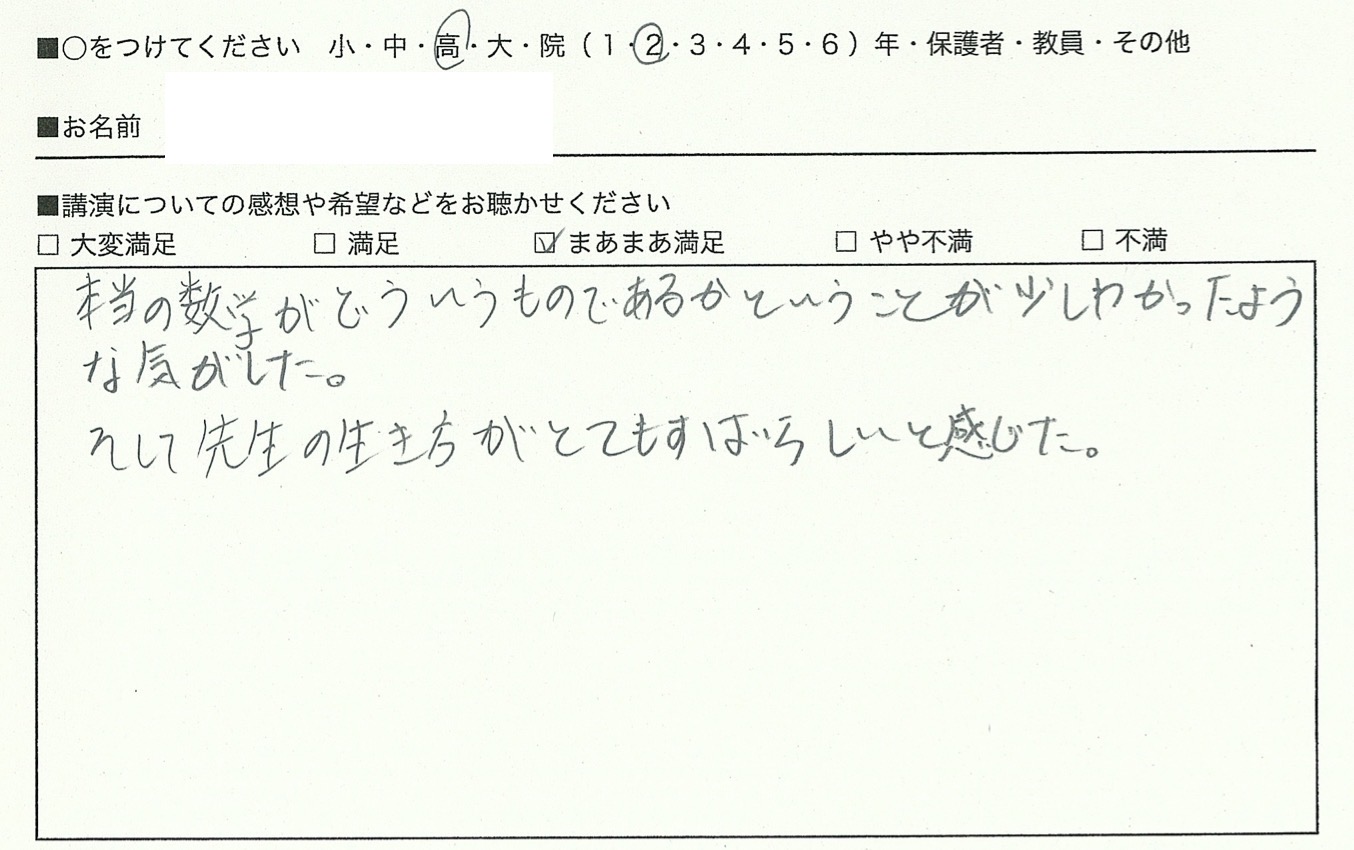 ■○をつけてください 小・中・高・大・院（1・2・3・4・5・6）年・保護者・教員・その他
■お名前
■講演についての感想や希望などをお聴かせください
□ 大変満足 □ 満足 ☑ まあまあ満足 □ やや不満 □ 不満
本当の数学がどういうものであるかということが少しわかったよう
な気がした。
そして先生の生き方がとてもすばらしいと感じた。